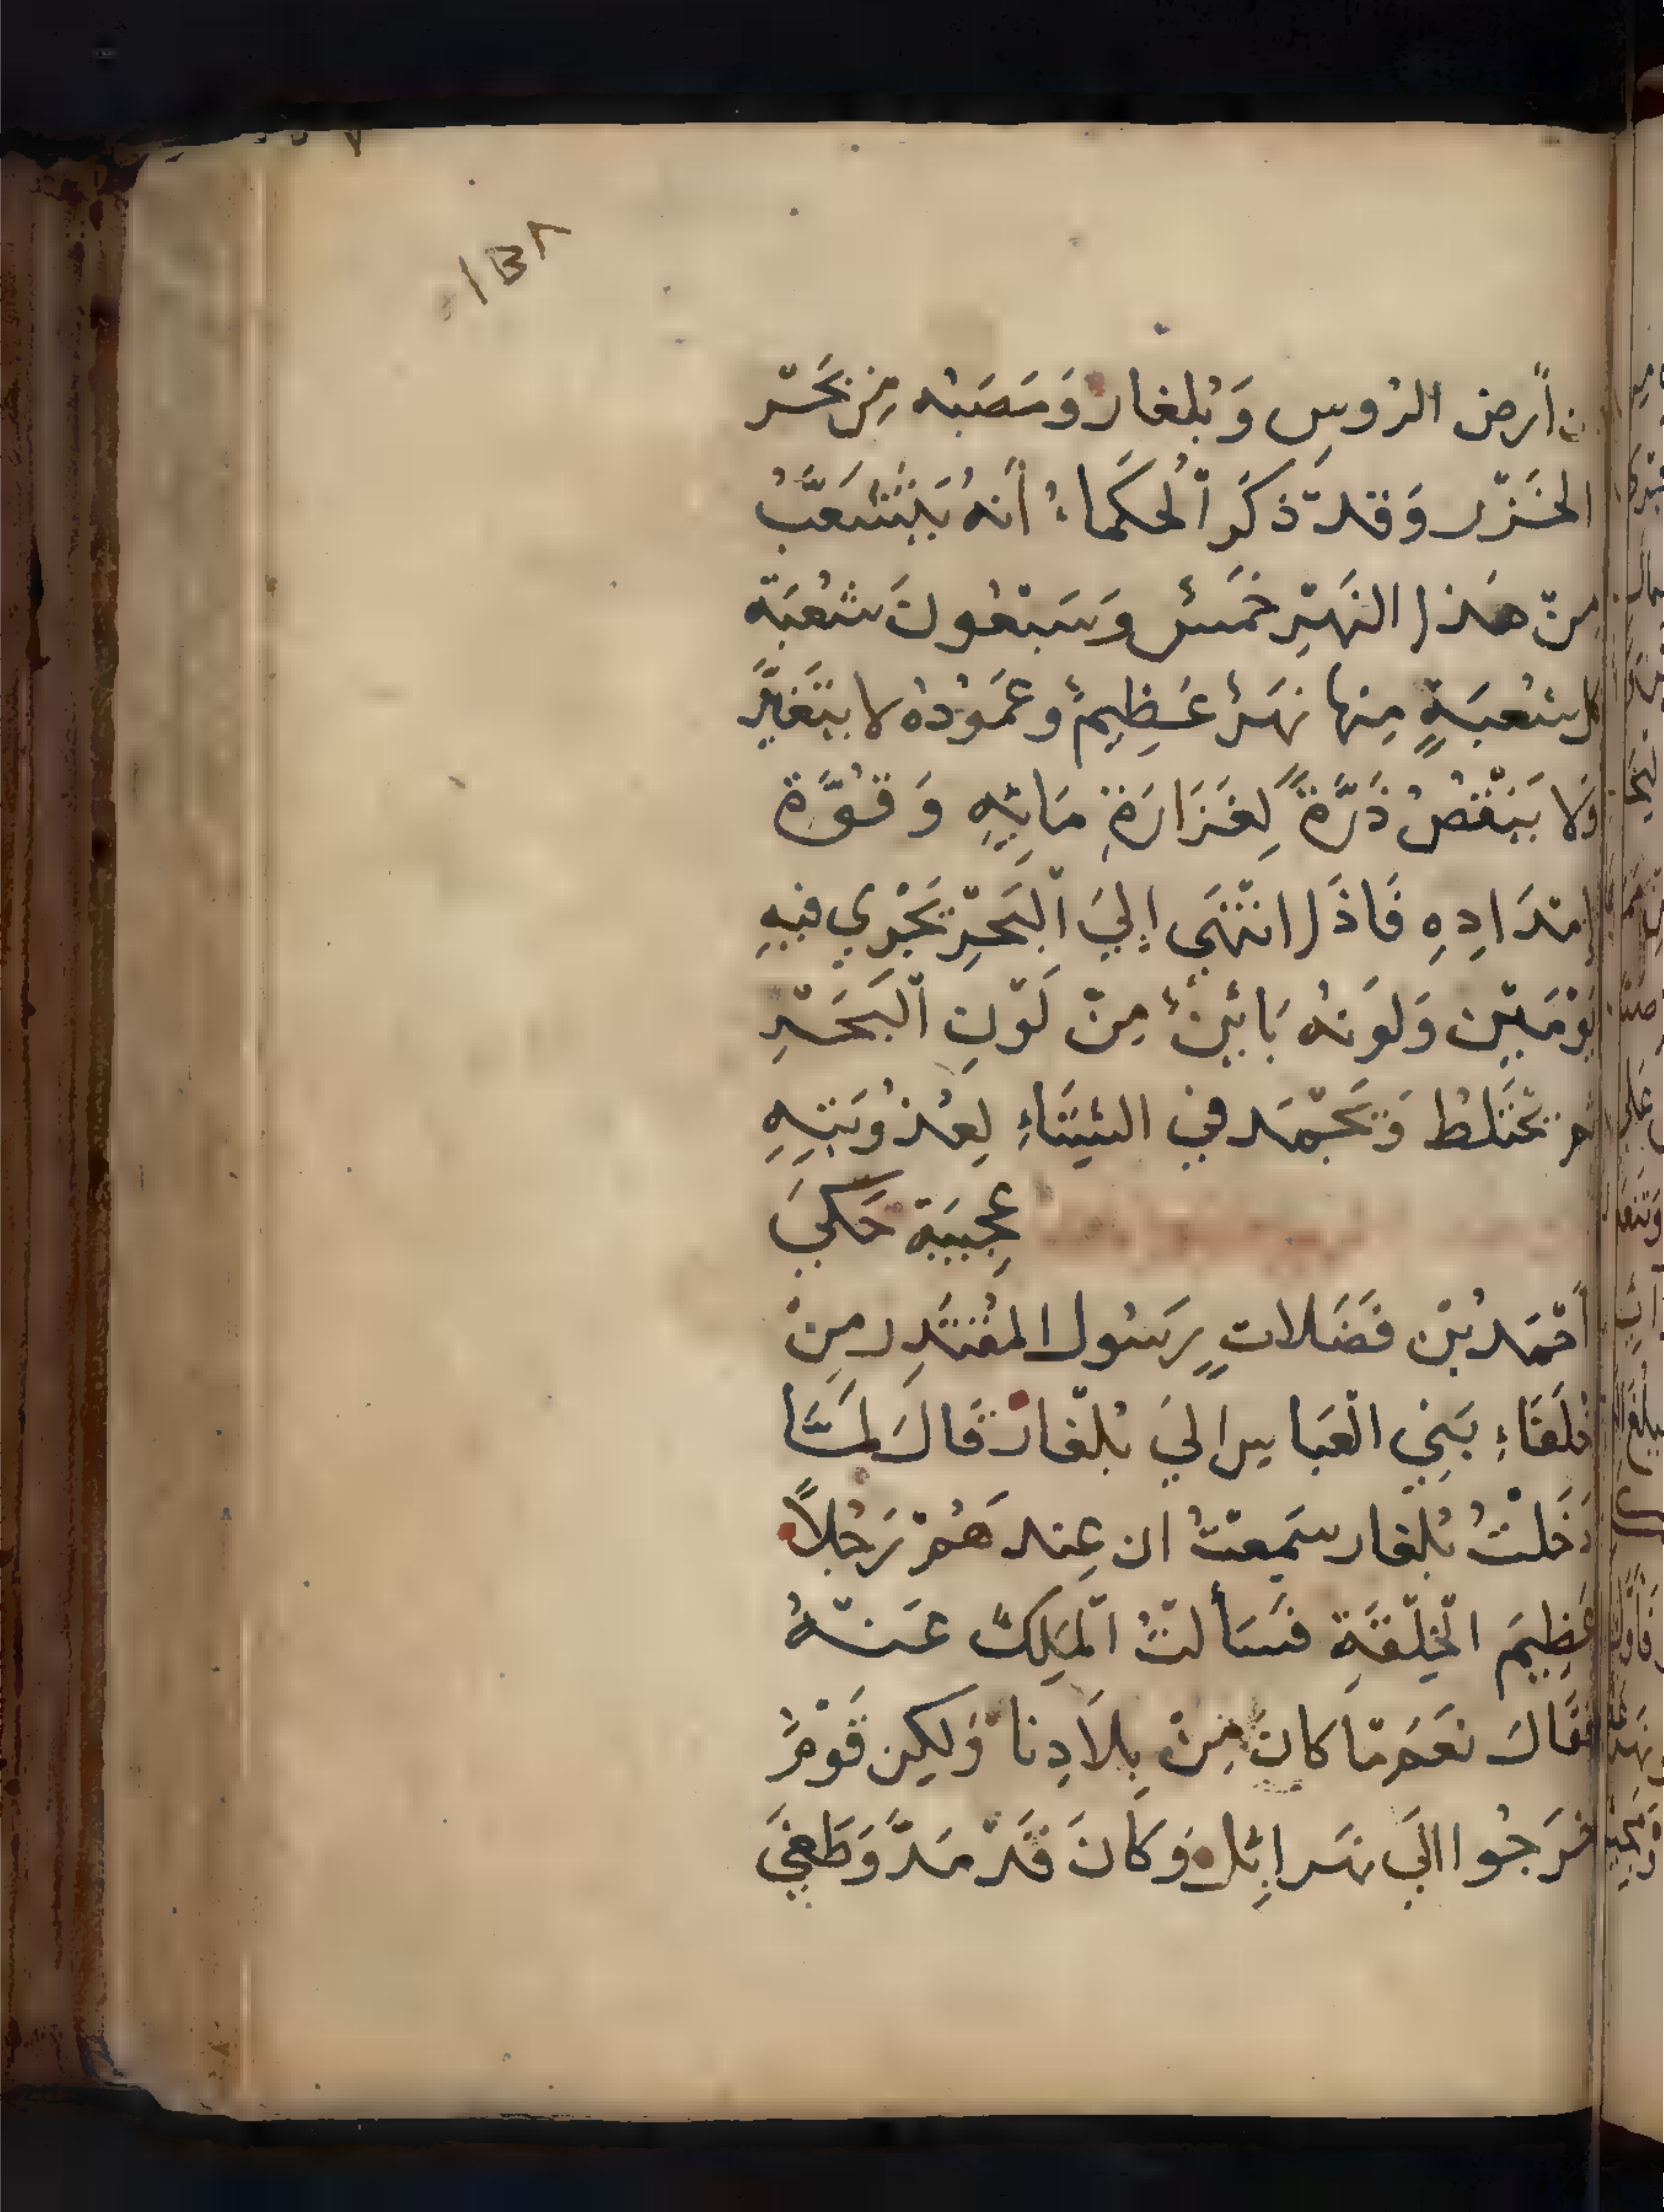 ١٣٨
من أرض الروسِ وَبُلغار وَمَصَبُه مِن بَحْر
الخَزْر وَقد ذكَر ٱلحكَماءُ أنهُ يَتَشَعَّبُ
مِنْ هَذا النَهْرِ خَمسٌ وَسَبْعُونَ شعُبَة
كل شعُبَةٍ مِنها نهَرٌ عَظِيمٌ وعَمَوُدُه لا يتَغَيَّر
وَلا يَنْقصُ ذَرَّةً لِغَزَارَةِ مَائِهِ وَقُوَّة
إمتدَادِهِ فَاذَا انتْهَى إليَ ٱلبَحْرِ يَجْرِي فيهِ
يَوْمَيْن وَلوَنهُ بَائِنٌ مِنْ لَوْنِ ٱلبَحَرِْ
ثم يَخْتَلطُ وَيَجْمَد في الشِتَاءِ لِعُذوُبَتِهِ
عَجِيبَة حَكَيَ
أحْمَد بْن فَضَلان رَسُول المقْتَدِر مِنْ
خُلَفَاءِ بَنِي الْعَباس اليَ بُلْغار قَالَ لَمَّا
دَخَلْتُ بُلغار سَمِعتُ ان عِند هَُمْ رَجُلاً
عَظِيمَ الْخِلْقَةِ فسَألتُ ٱلمَلِكَ عَنْهُ
فقَالَ نعَمَ مَا كانَ مِنْ بِلاَدِنا وَلكِن قَوْمٌ
خرَجُوا اليَ نهَر إتِل وَكَانَ قَدْ مَدَّ وَطَغيَ